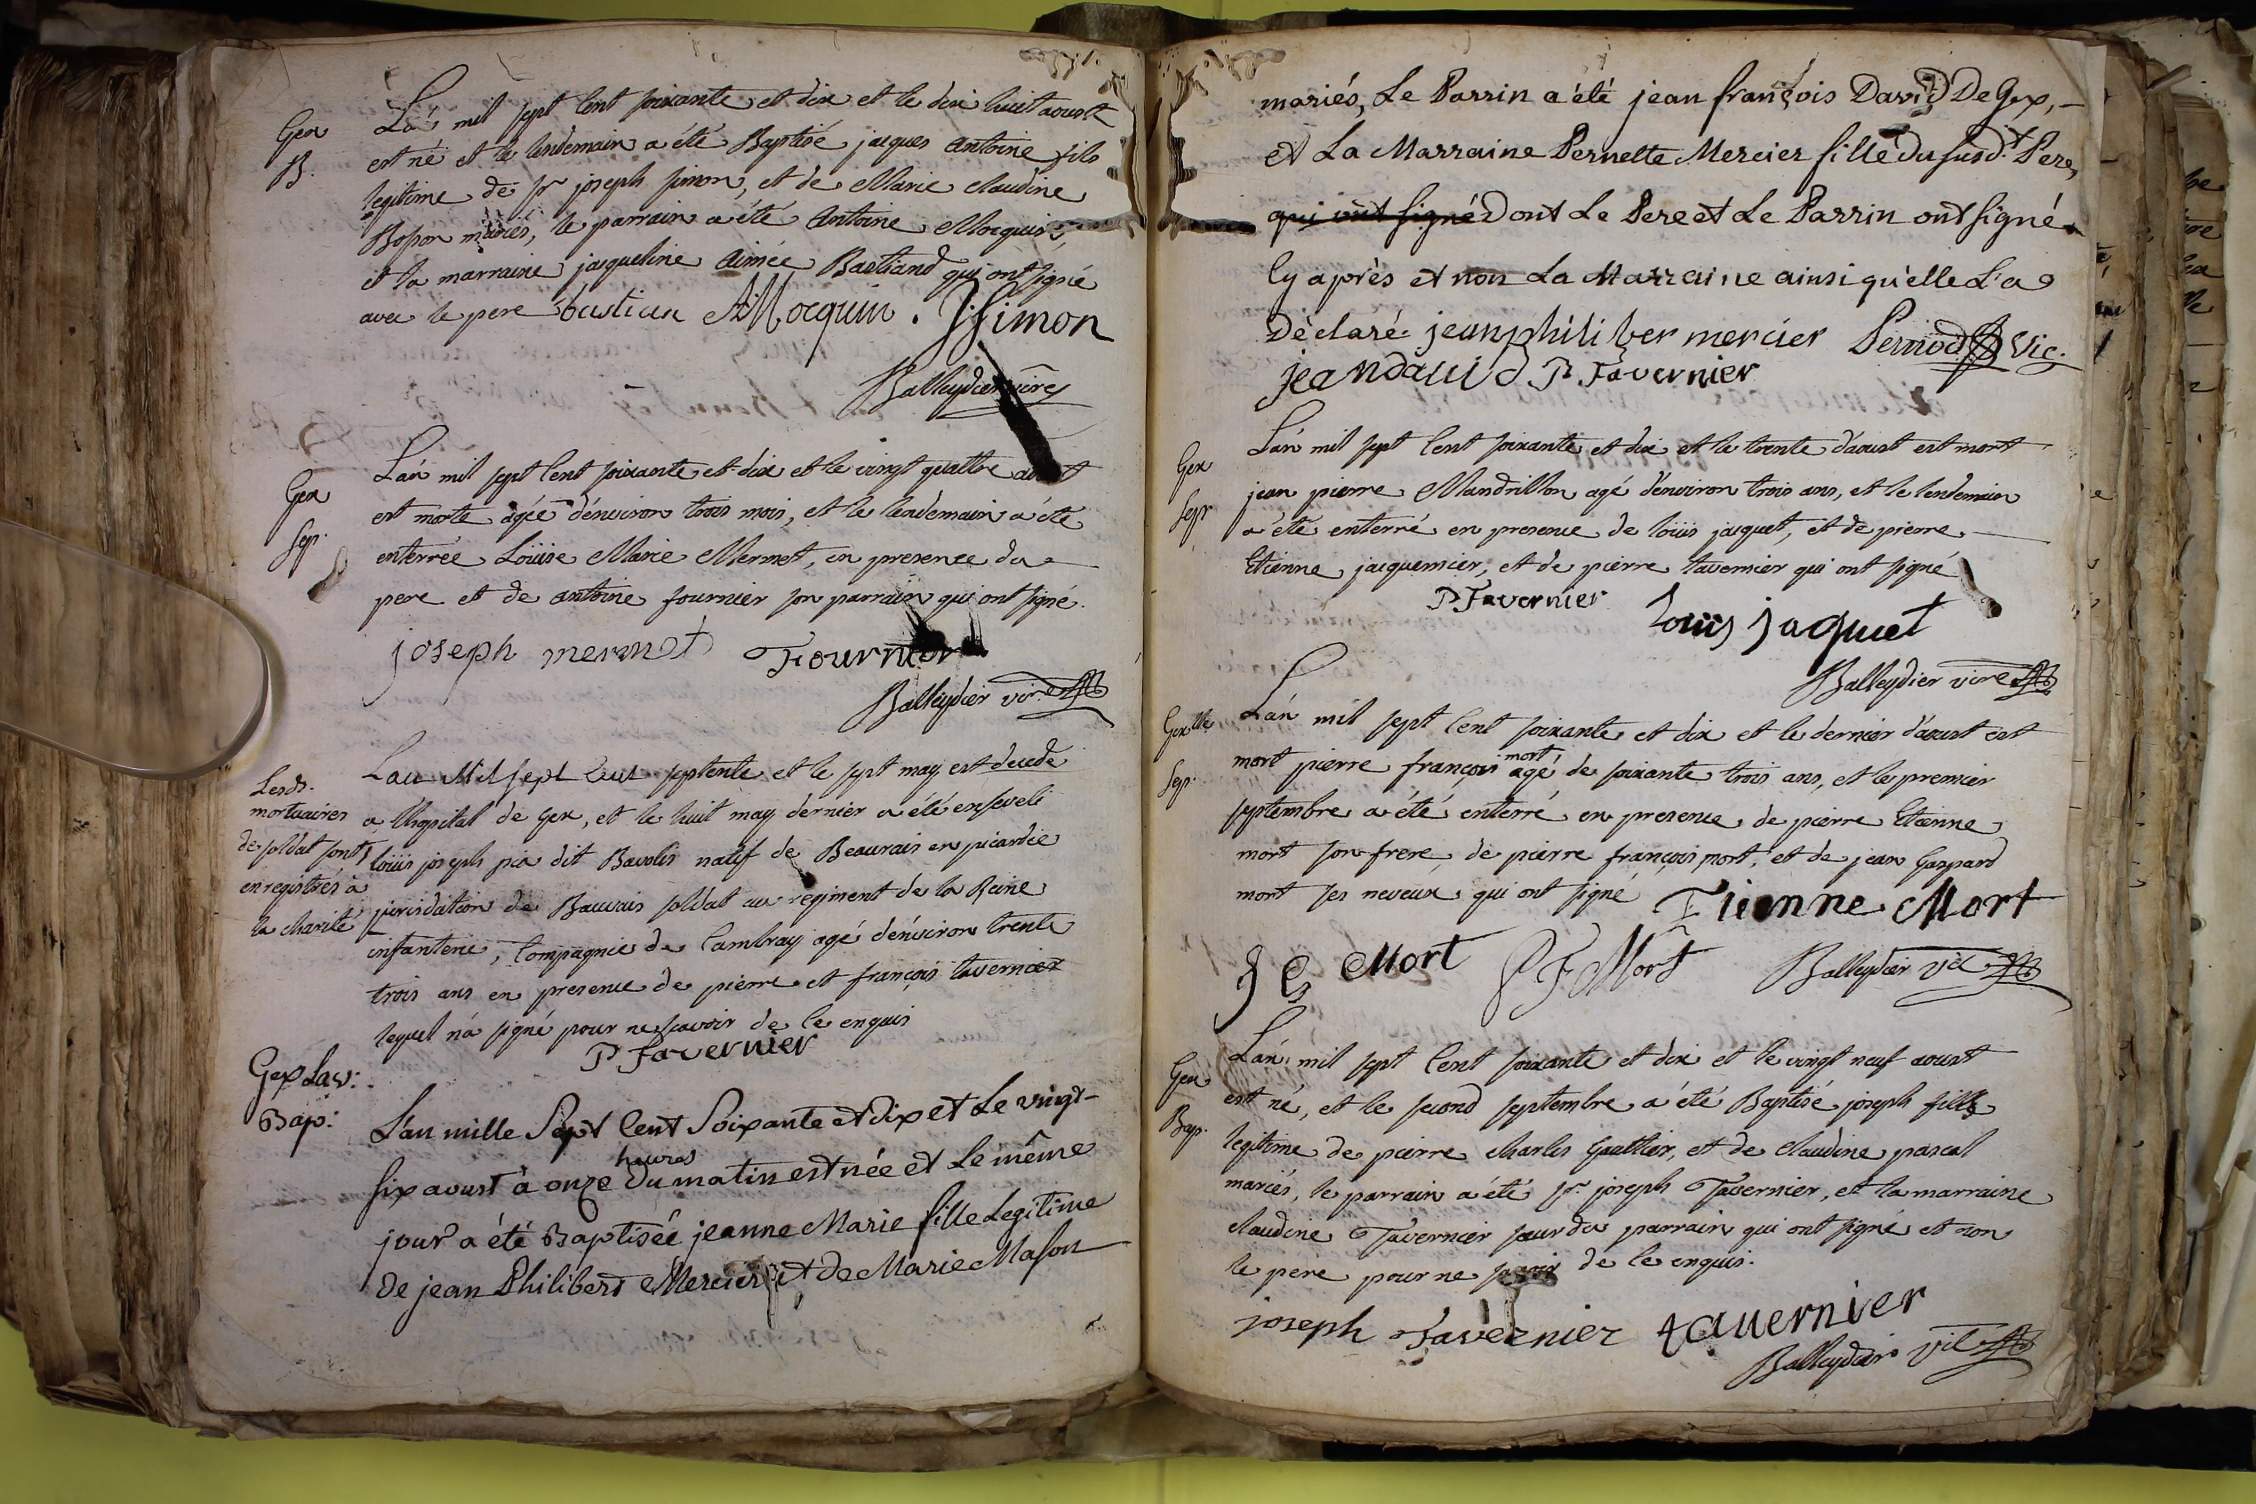 Gex
B.
L'an mil sept Cent soixante et dix et le dix huit aoust
est né et le lendemain a été Baptisé jacques antoine fils
legitime de sr joseph simon, et de Marie claudine
Bosson mariés, le parrain a été Antoine Mocquin,
et la marraine jacqueline Aimée Bastiand qui ont signé
avec le pere bastian AMocquin . JSimon
Balleydier vire
Gex
Sep.
L'an mil sept Cent soixante et dix et le vingt quattre aoust
est morte agée d'environ trois mois, et le lendemain a été
enterrée Loüise Marie Mermet, en presence du
pere et de antoine fournier son parrain qui ont signé.
joseph mermet Fournier
Balleydier vire
Les ds.
mortuaires
de soldat sont
enregistrés à
la charité
L'an Mil sept Cent septente et le sept may est decede
a l'hopital de Gex, et le huit may dernier a été enseveli
loüis joseph pia dit Bavolis natif de Beauvais en picardie
jurisdiction de Bauvais soldat au regiment de la Reine
infanterie, Compagnie de Cambray agé d'environ trente
trois ans en presence de pierre et françois tavernier
lequel n'a signé pour ne scavoir de ce enquis
P Tavernier
Gex Lav:
Bap:
L'an mille Sept Cent Soixante et Dix et Le vingt-
six aoust à onze heures du matin est née et Le même
jour a été Baptisée jeanne Marie fille Legitime
de jean Philibert Mercier et de Marie Mason
mariés, Le Parrin a été jean françois David De Gex,
et La Marraine Pernette Mercier fille du susd.t Pere,
qui ont signé Dont Le Pere et Le Parrin ont signé
Cy après et non La Marraine ainsi qu'elle L'a
Déclaré. jeanphiliber mercier Pernod Vic.
jeandauid P. Tavernier
Gex
Sepr
L'an mil sept Cent soixante et dix et le trente d'aoust est mort
jean pierre Mandrillon agé d'environ trois ans, et le lendemain
a été enterré en presence de loüis jaquet, et de pierre
Etienne jacquemier, et de pierre tavernier qui ont signé
P. Tavernier Louis jaquet
Balleydier vire
Gex
Sep.
L'an mil sept Cent soixante et dix et le dernier d'aoust est
mort pierre françois mort agé de soixante trois ans, et le premier
septembre a été enterré en presence de pierre Etienne
mort son frere, de pierre françois mort, et de jean Gaspard
mort ses neveux qui ont signé Etienne Mort
J G Mort P F Mort Balleydier vic
Gex
Bap.
L'an mil sept Cent soixante et dix et le vingt neuf aoust
est né, et le second septembre a été Baptisé joseph fils
legitime de pierre charles Gaultier, et de claudine pascal
mariés, le parrain a été sr. joseph Tavernier, et la marraine
claudine Tavernier sœur du parrain qui ont signé et non
le pere pour ne scavoir de ce enquis.
joseph Tavernier tauernier
Balleydier vic